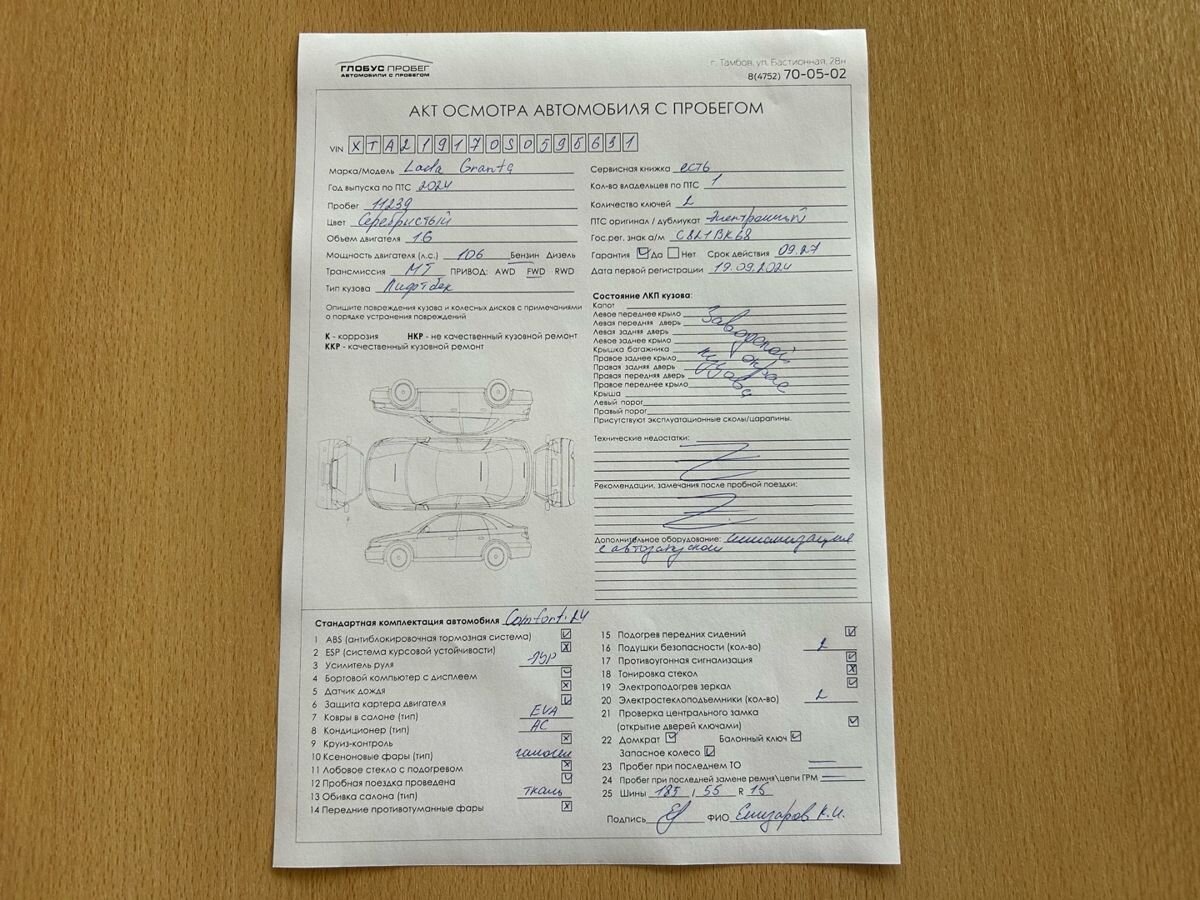 ГЛОБУС ПРОБЕГ
АВТОМОБИЛИ С ПРОБЕГОМ
г. Тамбов, ул. Бастионная, 28н
8(4752) 70-05-02
АКТ ОСМОТРА АВТОМОБИЛЯ С ПРОБЕГОМ
VIN XTA219170S0595631
Марка/Модель Lada Granta
Год выпуска по ПТС 2024
Пробег 11239
Цвет Серебристый
Объем двигателя 1.6
Мощность двигателя (л.с.) 106 Бензин Дизель
Трансмиссия МТ ПРИВОД: AWD FWD RWD
Тип кузова Лифтбек
Опишите повреждения кузова и колесных дисков с примечаниями
о порядке устранения повреждений
К - коррозия НКР - не качественный кузовной ремонт
ККР - качественный кузовной ремонт
Сервисная книжка есть
Кол-во владельцев по ПТС 1
Количество ключей 2
ПТС оригинал / дубликат Электронный
Гос.рег. знак а/м С821ВК68
Гарантия Да Нет Срок действия 09.27
Дата первой регистрации 19.09.2024
Состояние ЛКП кузова:
Капот
Левое переднее крыло
Левая передняя дверь
Левая задняя дверь
Левое заднее крыло
Крышка багажника
Правое заднее крыло
Правая задняя дверь
Правая передняя дверь
Правое переднее крыло
Крыша
Левый порог
Правый порог
Заводской
окрас
кузова
Присутствуют эксплуатационные сколы/царапины.
Технические недостатки:
Рекомендации, замечания после пробной поездки:
Дополнительное оборудование: сигнализация
с автозапуском
Стандартная комплектация автомобиля Comfort 24
1 ABS (антиблокировочная тормозная система)
2 ESP (система курсовой устойчивости)
3 Усилитель руля ЭУР
4 Бортовой компьютер с дисплеем
5 Датчик дождя
6 Защита картера двигателя
7 Ковры в салоне (тип) EVA
8 Кондиционер (тип) АС
9 Круиз-контроль
10 Ксеноновые фары (тип) галоген
11 Лобовое стекло с подогревом
12 Пробная поездка проведена
13 Обивка салона (тип) ткань
14 Передние противотуманные фары
15 Подогрев передних сидений
16 Подушки безопасности (кол-во) 2
17 Противоугонная сигнализация
18 Тонировка стекол
19 Электроподогрев зеркал
20 Электростеклоподъемники (кол-во) 2
21 Проверка центрального замка
(открытие дверей ключами)
22 Домкрат Балонный ключ
Запасное колесо
23 Пробег при последнем ТО
24 Пробег при последней замене ремня\цепи ГРМ
25 Шины 185 / 55 R 15
Подпись ФИО Елизаров К.И.